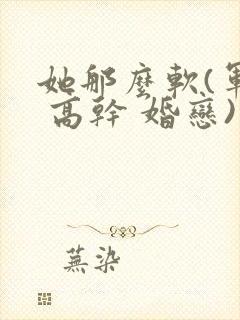 她那麼軟(軍
高幹 婚戀)
蕪染